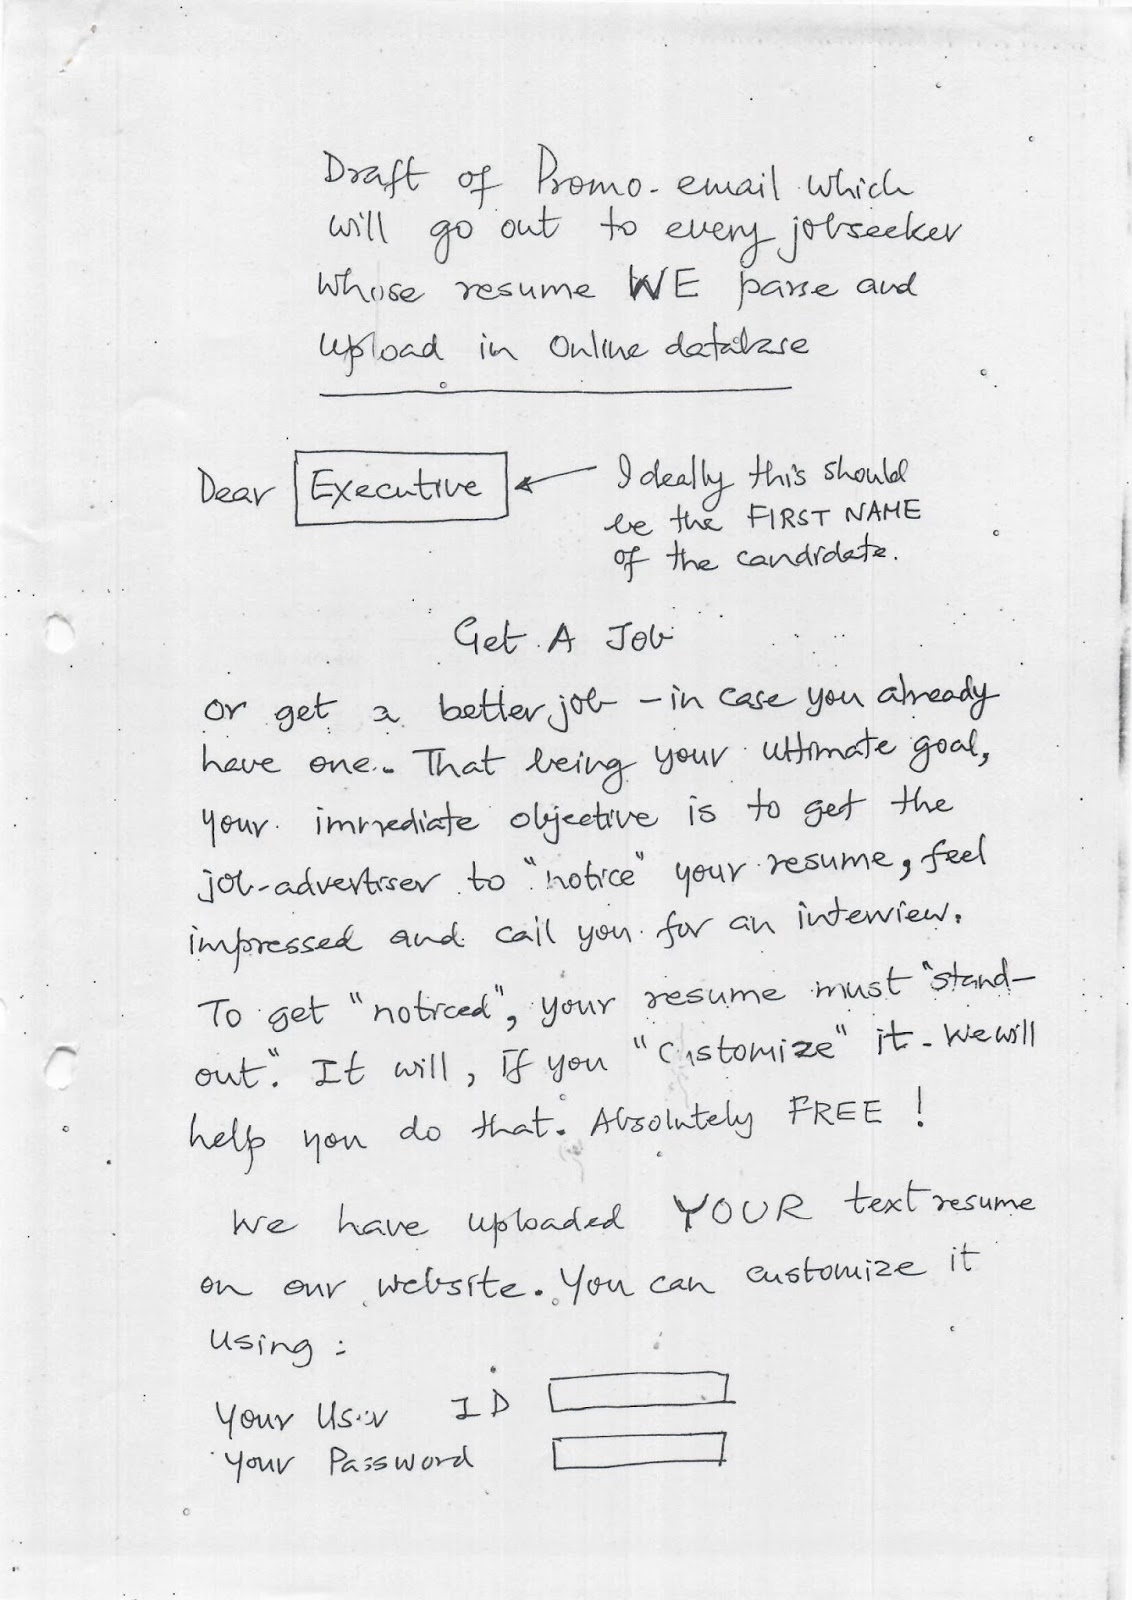 Draft of Promo-email which
will go out to every jobseeker
whose resume WE parse and
upload in Online database
Dear Executive
Ideally this should
be the FIRST NAME
of the candidate.
Get A Job
or get a better job - in case you already
have one. That being your ultimate goal,
your immediate objective is to get the
job-advertiser to "notice" your resume, feel
impressed and call you for an interview.
To get "noticed", your resume must "stand-
out". It will, if you "customize" it. We will
help you do that. Absolutely FREE !
We have uploaded YOUR text resume
on our website. You can customize it
using :
Your User ID
Your Password